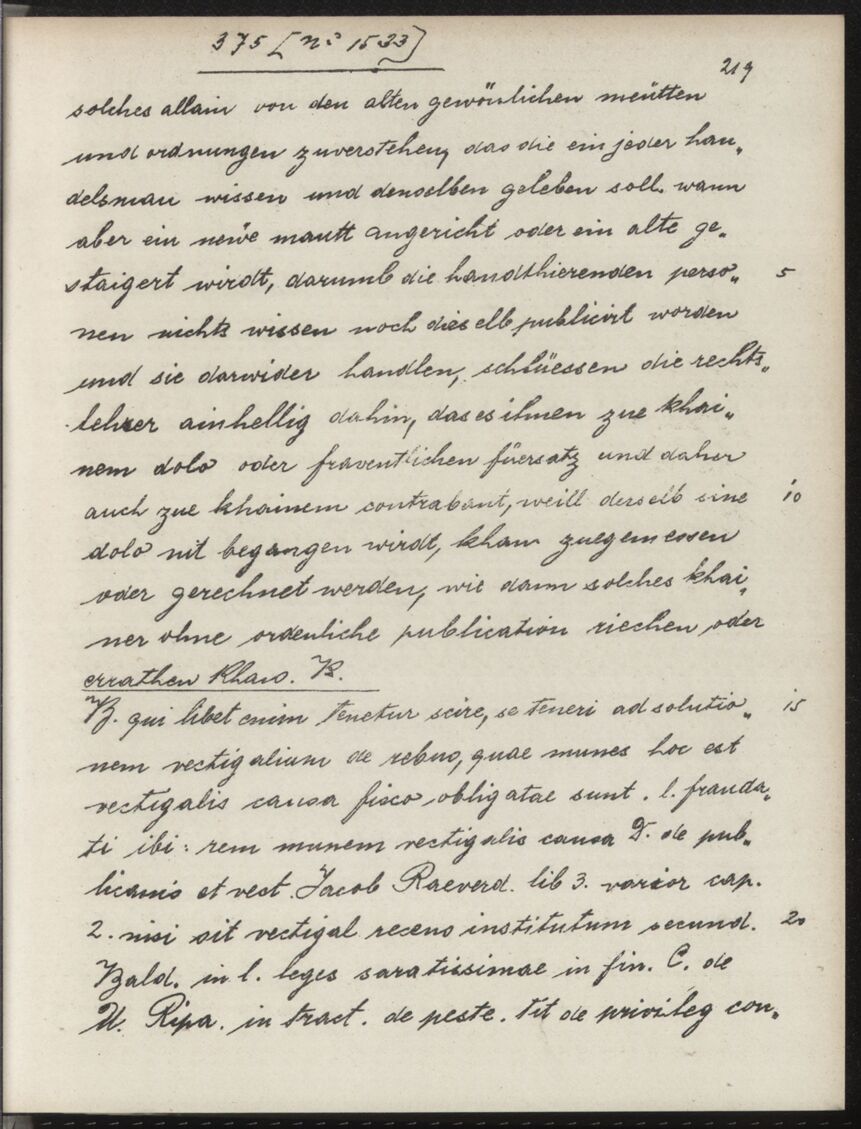 375 [nº 1533]
219
solches allain von den alten gewönlichen meütten
und ordnungen zuverstehen, das die ein jeder han„
delsman wissen und denselben geleben soll. wann
aber ein newe mautt angericht oder ein alte ge„
staigert wirdt, darumb die handthierenden perso„ 5
nen nichts wissen noch dieselb publicirt worden
und sie darwider handlen, schlüessen die rechts„
lehrer ainhellig dahin, das es ihnen zue khai„
nem dolo oder fraventlichen fürsatz und daher
auch zue khainem contrabant, weill derselb sine 10
dolo nit begangen wirdt, khan zuegemessen
oder gerechnet werden, wie dann solches khai„
ner ohne ordenliche publication riechen oder
errathen khan. B.
B. qui libet enim tenetur scire, se teneri ad solutio„ 15
nem vectigalium de rebus, quae munes hoc est
vectigalis causa fisco obligatae sunt. l. frauda„
ti ibi: rem munem vectigalis causa D. de pub„
licanis et vect. Jacob Raeverd. lib 3. varior cap.
2. nisi sit vectigal recens institutum secund. 20
Bald. in l. leges saratissimae in fin. C. de
ll. Ripa. in tract. de peste. tit de privileg con„